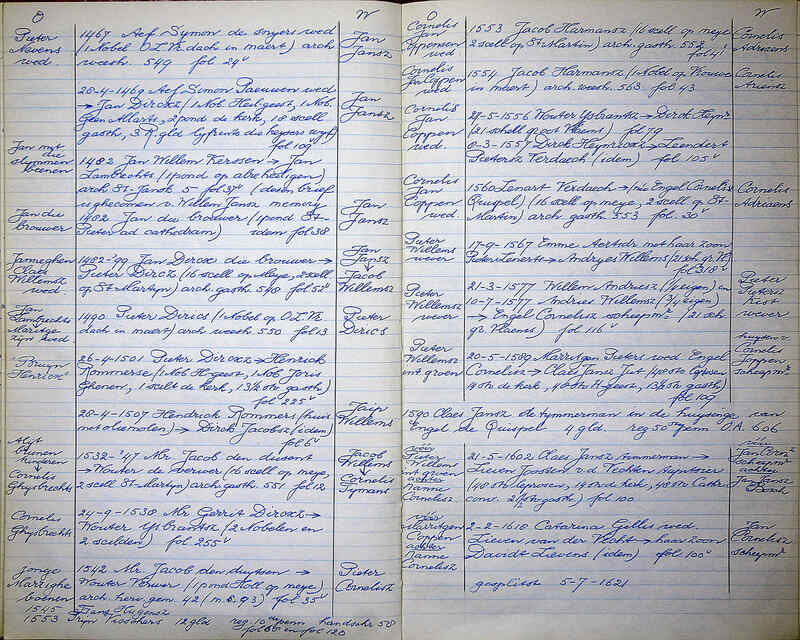 O
W
Pieter
Nevens
wed.
1467 Aef Symon de snyers wed
(1 Nobel O.L.V. dach in maert) arch
weesh. 549 fol 24v
Jan
Jansz
28-4-1469 Aef Simon Paeuwen wed
→ Jan Dircxz (1 Nob Heilgeest, 1 Nob.
gasth, 3 R gld
fol 109v
Jan
Jansz
Jan met
die
stommen
beenen
1482 Jan Willem Kerssen → Jan
Lambrechts (1 pond op alreheiligen)
arch St. Janok 5 fol 37v (dezen brief
v. Willem Jansz memory
Jan
Jansz
Jan die
brouwer
1482 Jan die brouwer (1 pond St-
Pieter ad cathedram) idem fol 38
Jan
Jansz
Jannighen
Claes
Willemsz
wed
1482-'99 Jan Dircxz die brouwer →
Pieter Dircz (16 scell op Meye, 2 scell
op St Martyn) arch. gasth. 548 fol 52v
Jan
Jansz
↓
Jacob
Willemsz
Jan
Lambrechts
Maritge
zyn wed
1490 Pieter Dirics (1 Nobel op O.L.V.
dach in maert) arch weesh 550 fol 13
Pieter
Dirics
Bruyn
Henricxz
26-4-1501 Pieter Dircxz → Henrick
Rommerse (1 Nob H. geest, 1 Nob Joris
Ghonen, 1 scilt de kerk, 13½ sth gasth)
fol 225v
28-4-1507 Hendrick Rommers (huis
met oliemolen) → Dirck Jacobsz (idem)
fol 6v
Jaip
Willems
Alijt
Cornelis
Ghysbrechts
1532-'47 Mr. Jacob den
→ Wouter de Verwer (16 scell op meye,
2 scell St Martyn) arch gasth. 551 fol 12
Jacob
Willems
↓
Cornelis
Tymans
Cornelis
Ghysbrechts
24-9-1538 Mr Gerrit Dircxz →
Wouter Ysbrantsz (2 Nobelen en
2 scilden) fol 255v
Jonge
Marrighe
boenen
1542 Mr. Jacob den
Wouter Verwer (1 pond Holl op meye)
arch. herv. gem. 42 (m.s. 93) fol 35v
Pieter
Cornelisz
1545 Frans Hugensz
1553 Tryn Visschers 12 gld reg 10e penn handschr 58
fol 66 en fol 120
O
W
Cornelis
Jan
Coppensen
wed
1553 Jacob Harmansz (16 scell op meye
2 scell op St Martin) arch. gasth. 552
fol 41v
Cornelis
Adriaens
Cornelis
Jan Coppen
wed
1554 Jacob Harmansz (1 Nobel op Vrouwen
in maert) arch. weesh. 563 fol 43
Cornelis
Cornelis
Jan
Coppen
wed.
27-5-1556 Wouter Ysbrantsz → Dirck Heynr
(21 schell groot Vlaems) fol 79
8-3-1557 Dirck Heynricxz → Leendert
Pietersz Verduch (idem) fol 105v
Cornelis
Jan
Coppen
wed.
1560 Lenart Verduech → (nu Engel Cornelis
Quispel) (16 scell op meye, 2 scell op St-
Martin) arch gasth 553 fol. 30v
Cornelis
Adriaens
Pieter
Willems
wever
17-9-1567 Emme Aertsdr met haar zoon
Pieter Lenerts → Andryes Willems (21 sch gr Vl)
fol 318v
Pieter
Willems
wever
21-3-1577 Willem Andriesz (½ eigen) en
10-7-1577 Andries Willems (½ eigen)
→ Engel Cornelisz scheepmr (21 sch
gr. Vlaems) fol 116v
Pieter
Pieters
Kist
wever
Pieter
Willemsz
int groen
20-5-1589 Marritgen Pieters wed Engel
Cornelisz → Claes Jansz
40 sth de kerk, 40 sth H. geest, 13½ sth gasth)
fol 109
huysvr
Cornelis
scheepmr
1590 Claes Jansz de tymmerman in de huysinge van
Engel de Quispel 4 gld. reg 50ste penn O.A. 606
vóór
Pieter
Willemsz
int groen
achter
Nanne
Cornelisz
21-5-1602 Claes Jansz timmerman →
Lieven Joosten v.d. Vechten
(40 sth leprosen, 14 sth d kerk, 40 sth Cathr.
conv. 2½ sth gasth) fol 100
vóór
Jan Corn.
scheepmr
achter
Jan Jansz
vóór
Marritgen
Coppen
achter
Nanne
Cornelisz
2-2-1610 Catarina Gillis wed.
Lieven van der Vecht → haar zoon
Davidt Lievens (idem) fol 100v
Jan
Cornelisz
scheepmr
gesplitst 5-7-1621